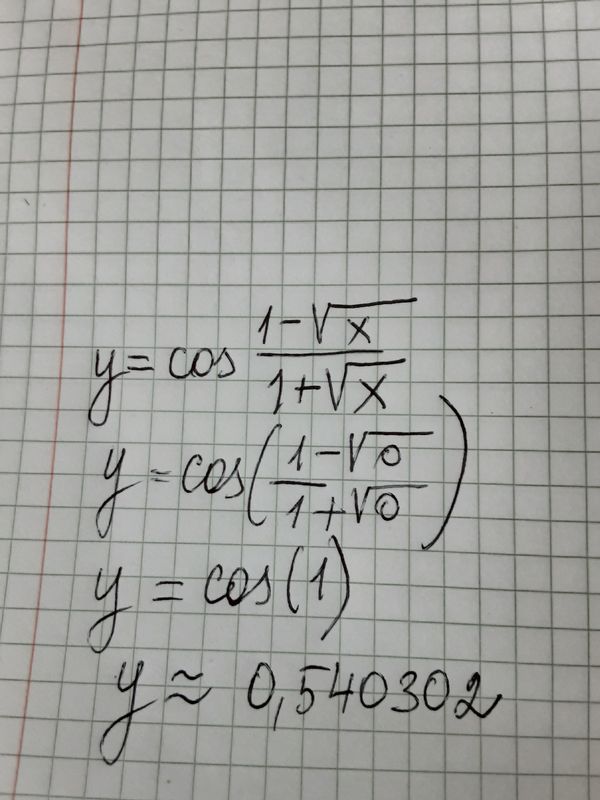 y = cos (1-√x)/(1+√x)
y = cos((1-√0)/(1+√0))
y = cos(1)
y ≈ 0,540302